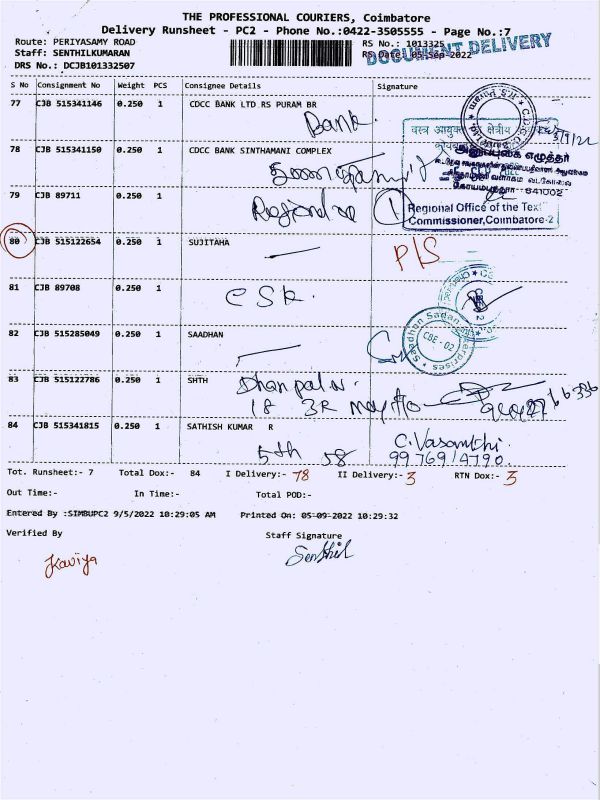 THE PROFESSIONAL COURIERS, Coimbatore
Delivery Runsheet - PC2 - Phone No.:0422-3505555 - Page No.:7
Route: PERIYASAMY ROAD RS No.: 1013325
Staff: SENTHILKUMARAN RS Date: 05-Sep-2022
DOCUMENT DELIVERY
DRS No.: DCJB101332507
S No Consignment No Weight PCS Consignee Details Signature
77 CJB 515341146 0.250 1 CDCC BANK LTD RS PURAM BR
Bank.
78 CJB 515341150 0.250 1 CDCC BANK SINTHAMANI COMPLEX
79 CJB 89711 0.250 1
Regional Office of the Tex
Commissioner,Coimbatore-2
80 CJB 515122654 0.250 1 SUJITAHA P/S
81 CJB 89708 0.250 1
CSK.
82 CJB 515285049 0.250 1 SAADHAN
Saadhan Sadan Enterprises
CBE - 02
83 CJB 515122786 0.250 1 SHTH
Dhanpal N.
84 CJB 515341815 0.250 1 SATHISH KUMAR R
5th 58 C. Vasanthi
9976914790
Tot. Runsheet:- 7 Total Dox:- 84 I Delivery:- 78 II Delivery:- 3 RTN Dox:- 3
Out Time:- In Time:- Total POD:-
Entered By :SIMBUPC2 9/5/2022 10:29:05 AM Printed On: 05-09-2022 10:29:32
Verified By Staff Signature
Kaviya Senthil